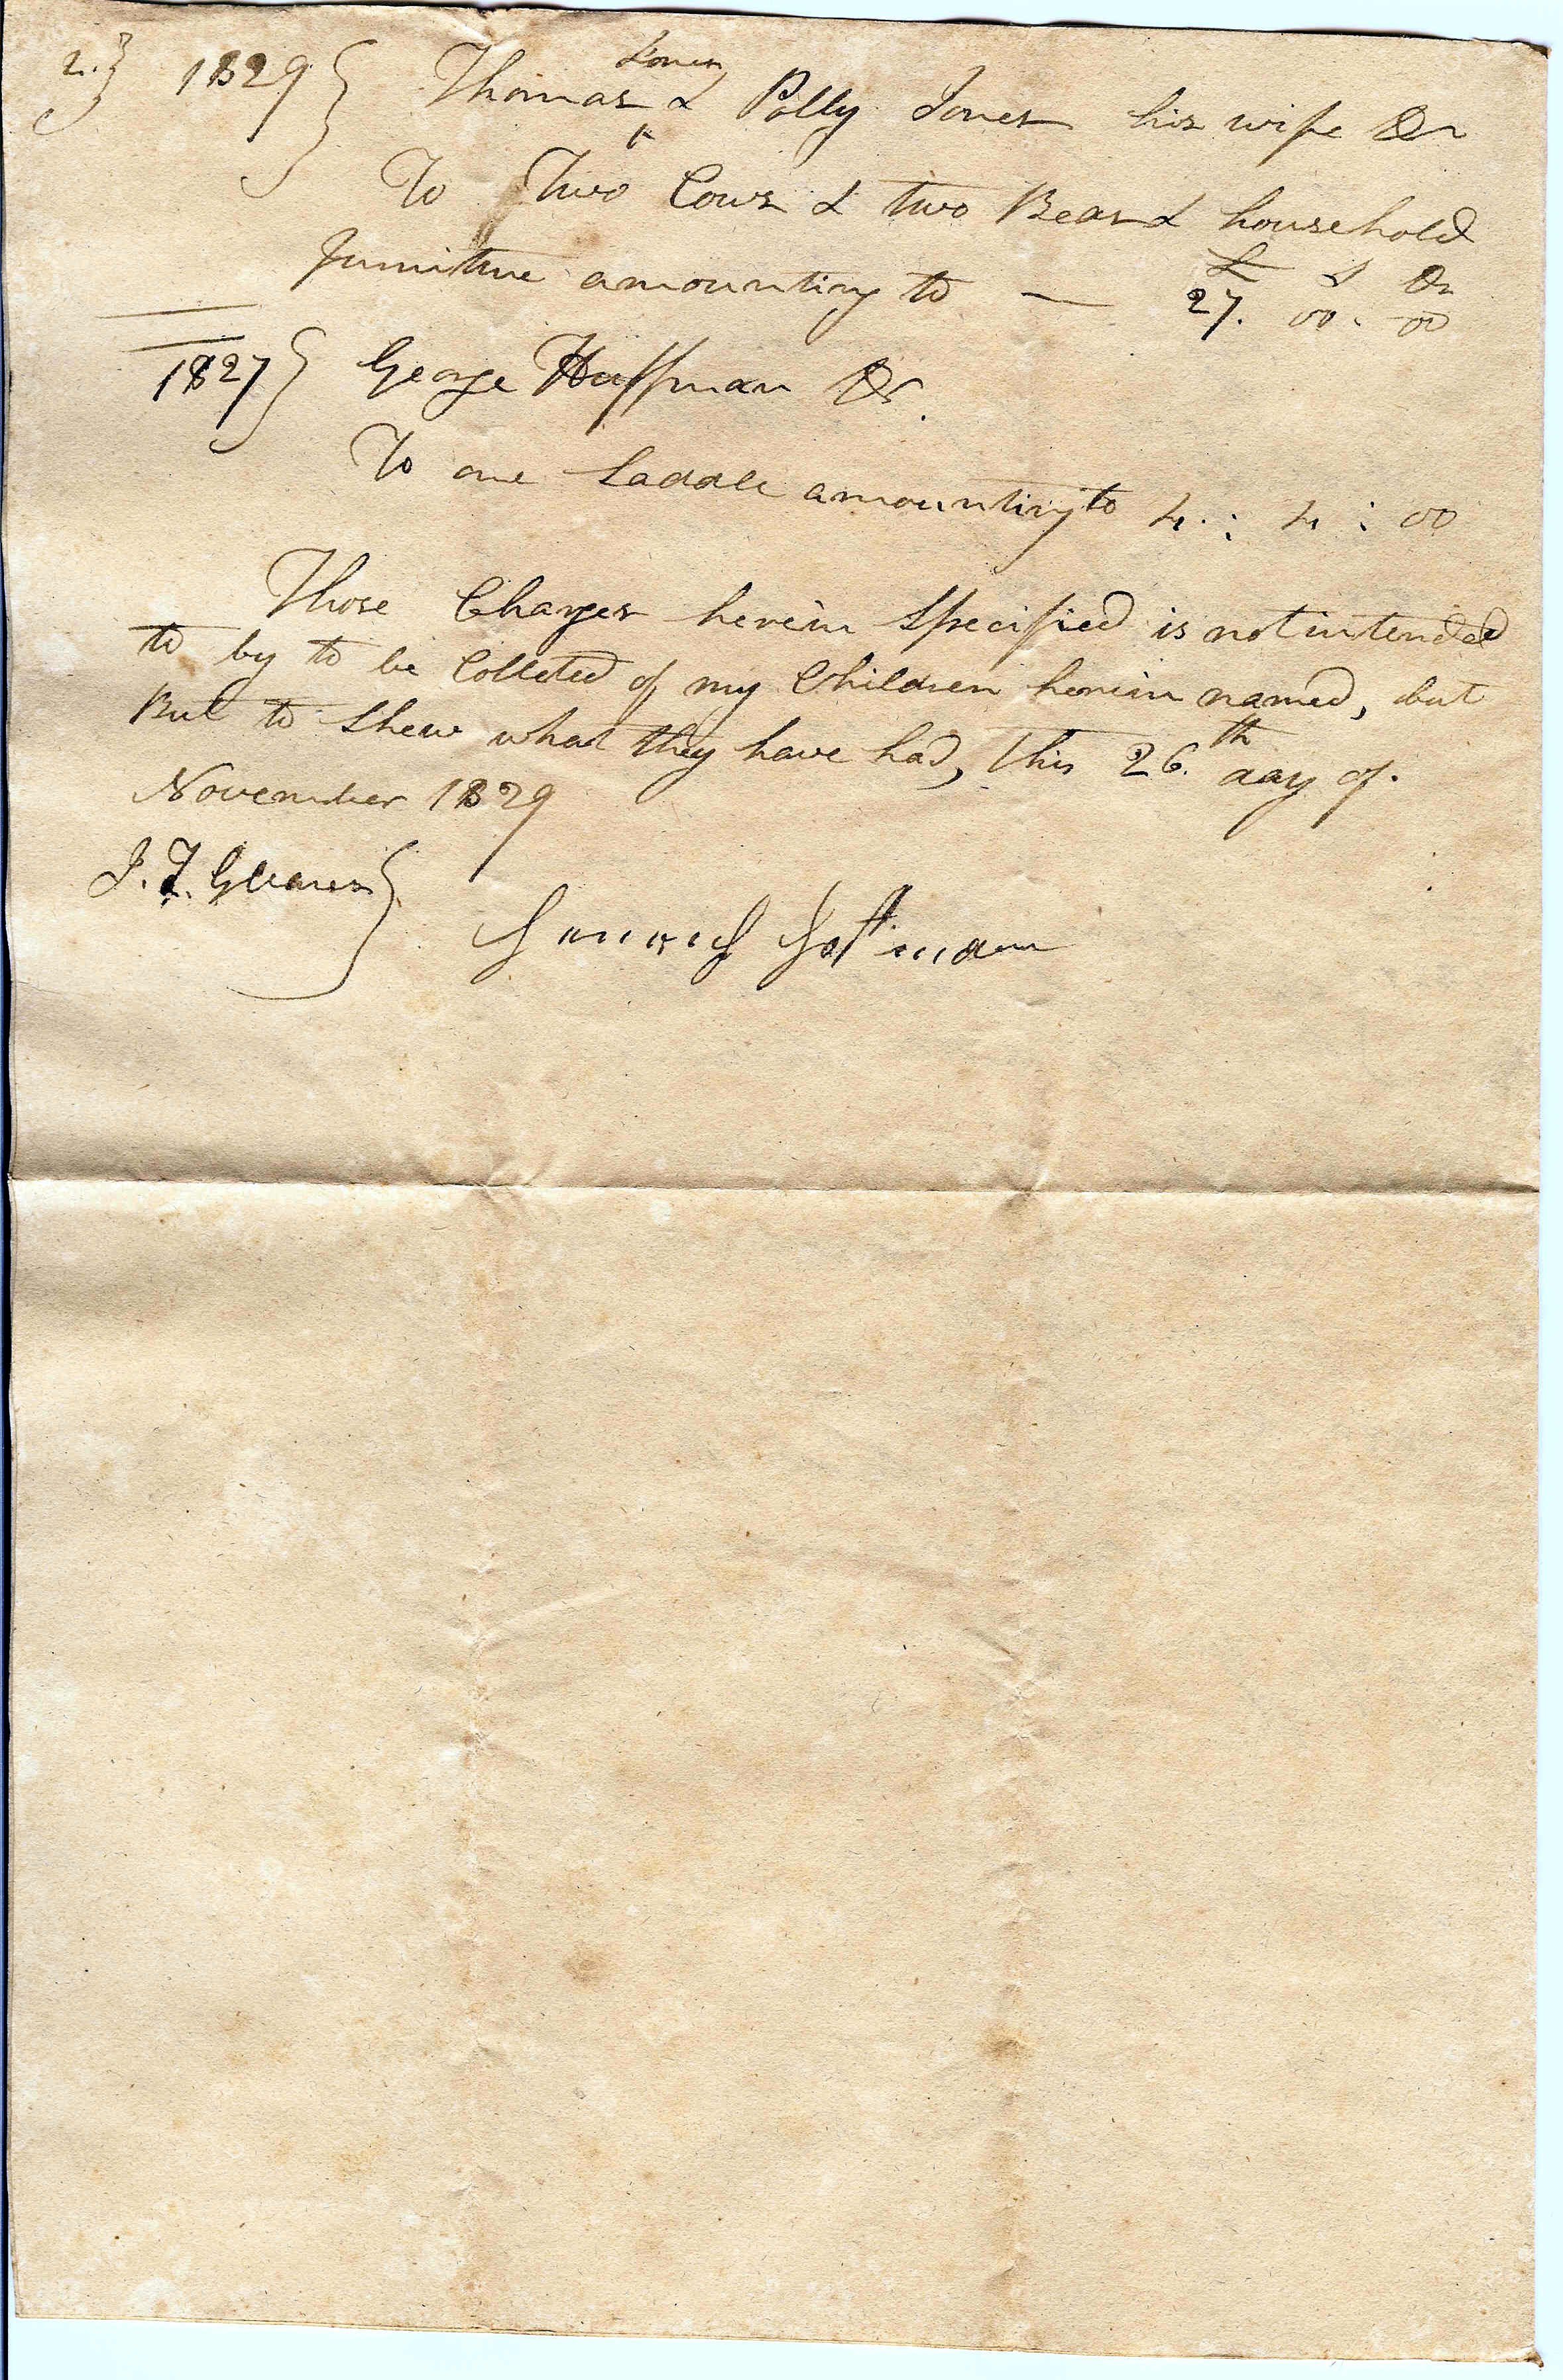 2. } 1829 } Thomas ^Jones & Polly Jones his wife Dr
To Two Cows & two Beds & household
£ S D
furniture amounting to — 27. 00. 00
1827 } George Huffman Dr.
To one Saddle amounting to 4 : 4 : 00
Those Charges herein Specified is not intended
to by to be Colleted of my Children herein named, but
But to Shew what they have had, this 26.th day of.
November 1829
J. T. Gleaves }